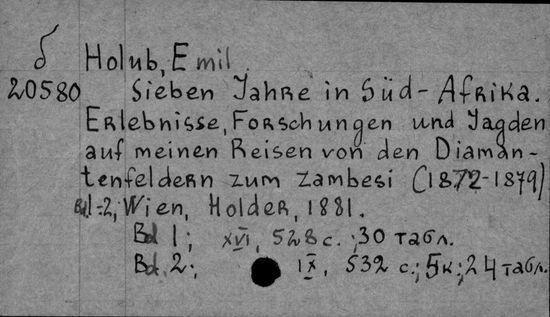 б Holub, Emil
20580 Sieben Jahre in Süd-Afrika.
Erlebnisse, Forschungen und Jagden
auf meinen Reisen von den Diaman-
tenfeldern zum Zambesi (1872-1879)
Bd.1-2, Wien, Holder, 1881.
Bd 1; XVI, 528 с.; 30 табл.
Bd. 2; IX, 532 с.; 5к.; 24 табл.